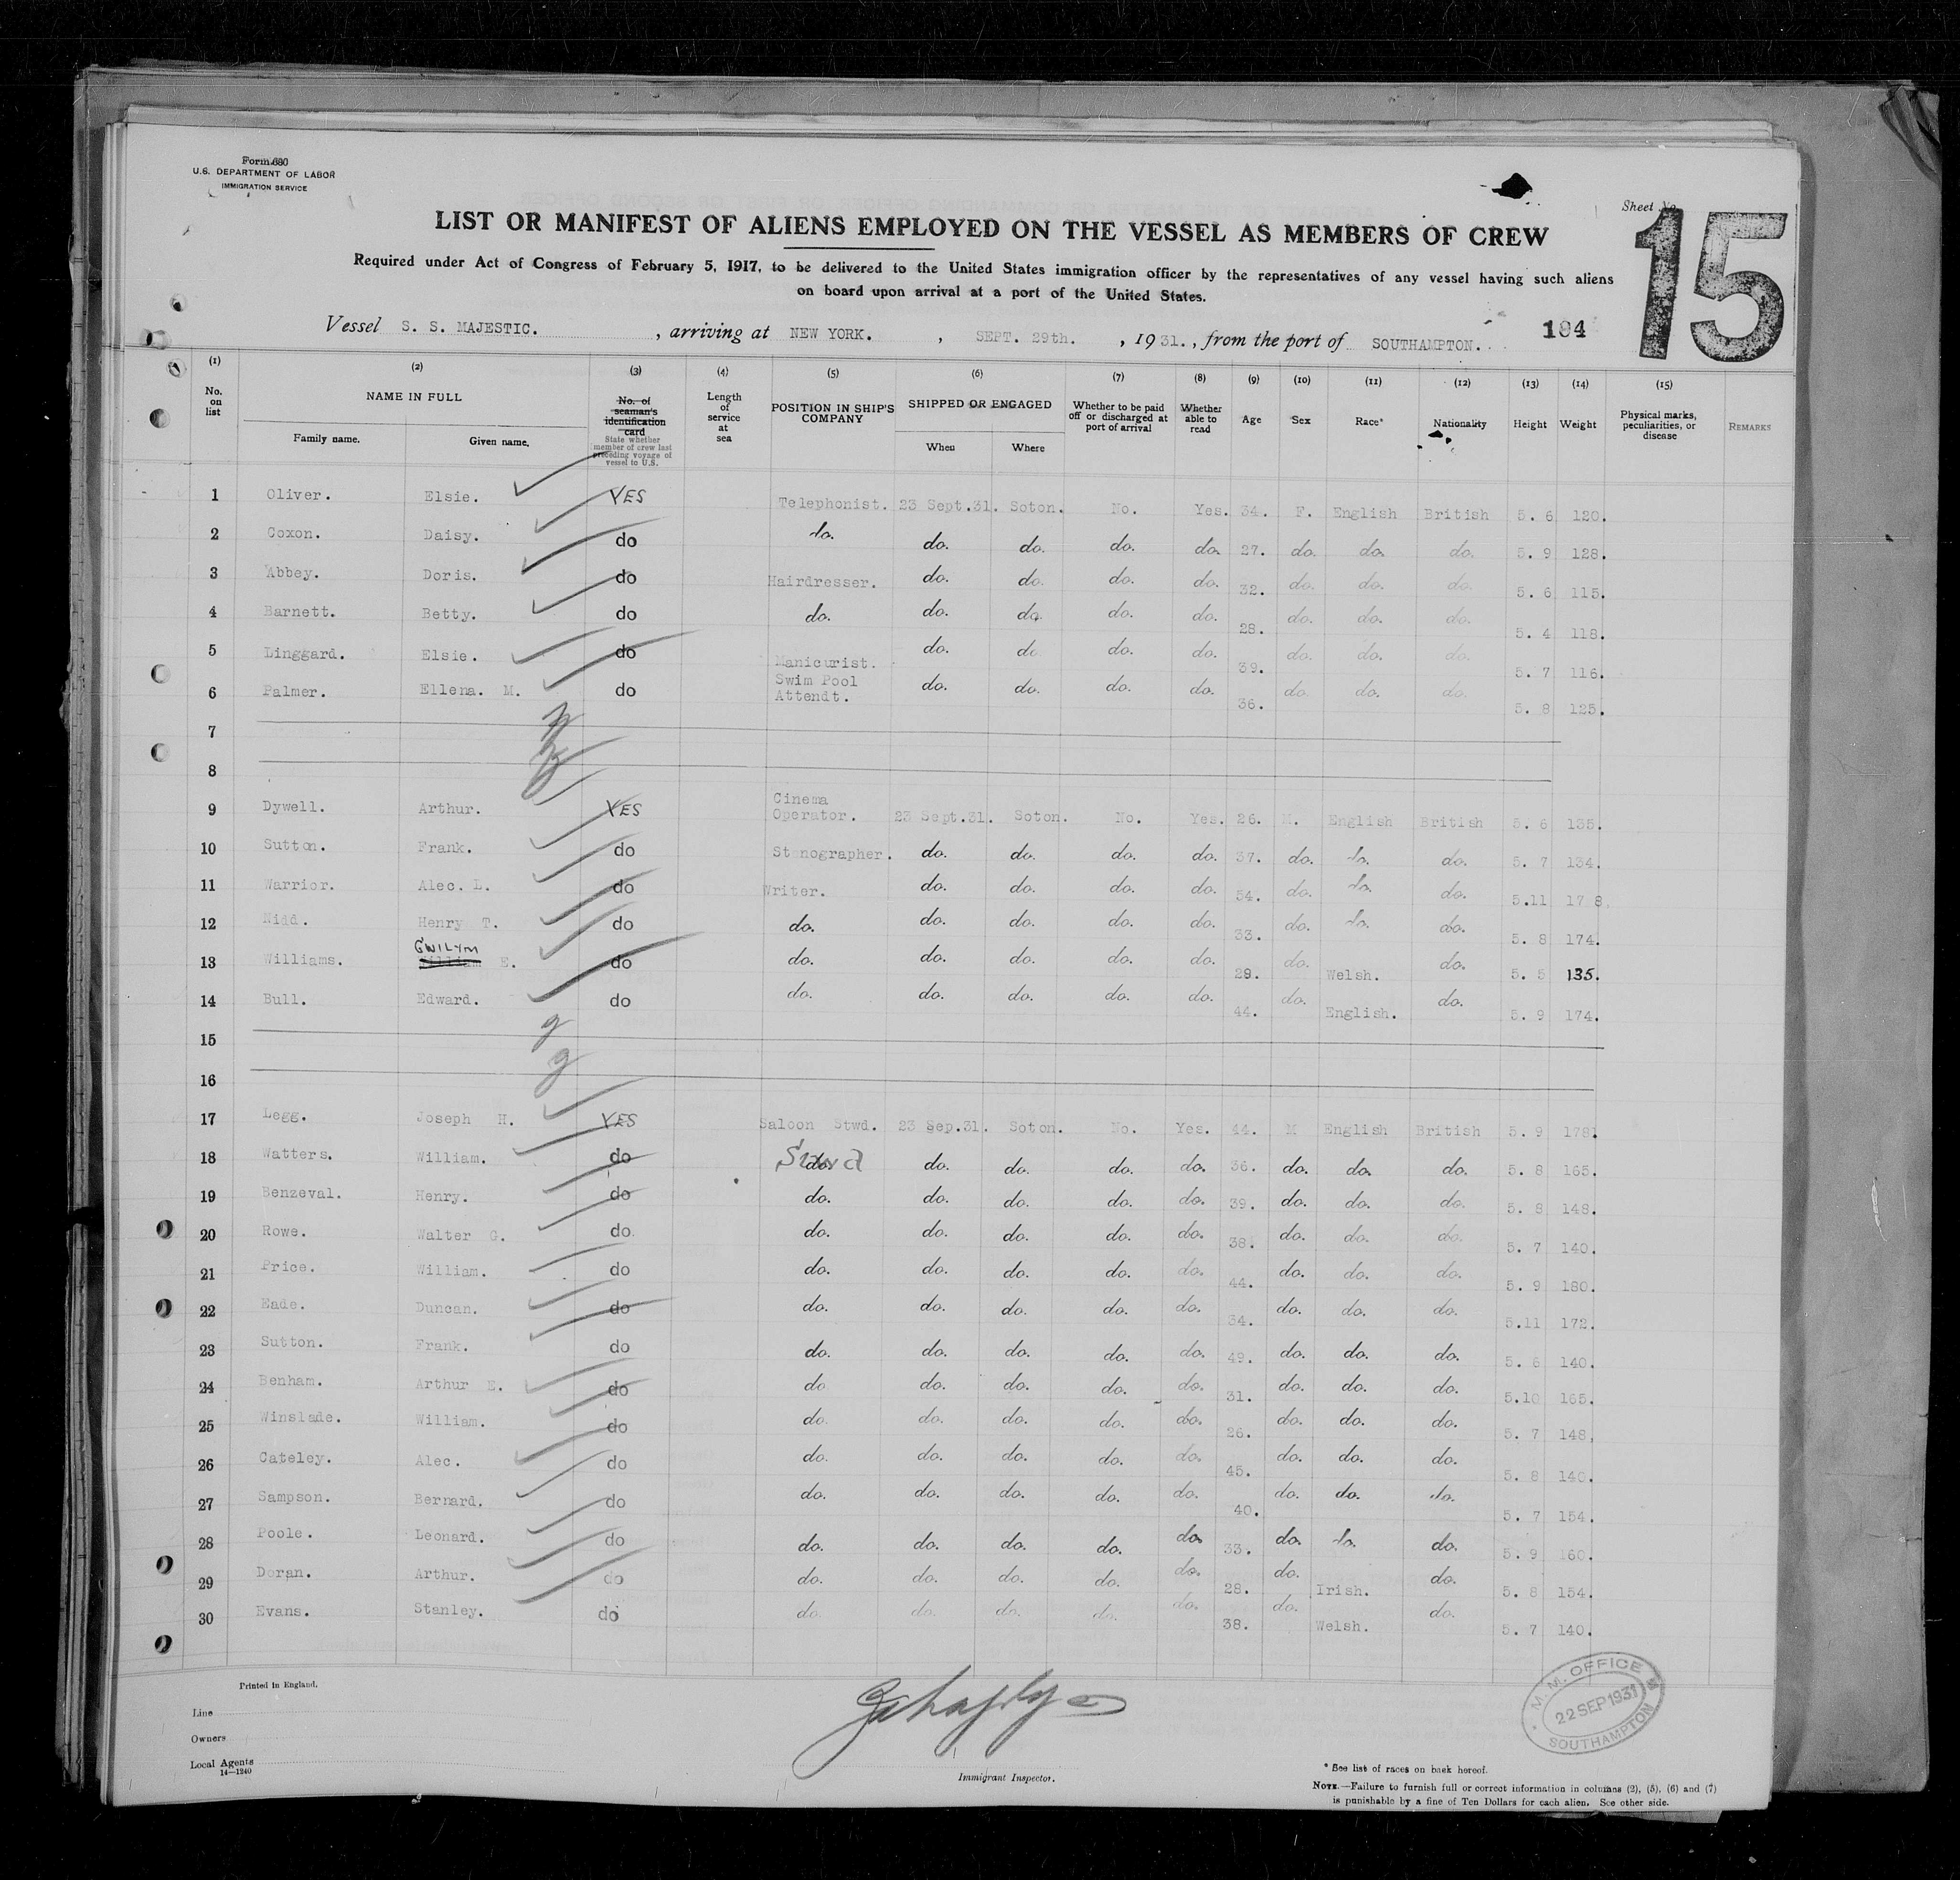 Form 680
U.S. DEPARTMENT OF LABOR
IMMIGRATION SERVICE
Sheet No.
15
LIST OR MANIFEST OF ALIENS EMPLOYED ON THE VESSEL AS MEMBERS OF CREW
Required under Act of Congress of February 5, 1917, to be delivered to the United States immigration officer by the representatives of any vessel having such aliens
on board upon arrival at a port of the United States.
Vessel S. S. MAJESTIC. , arriving at NEW YORK. , SEPT. 29th. , 1931. , from the port of SOUTHAMPTON. 194
(1) (2) (3) (4) (5) (6) (7) (8) (9) (10) (11) (12) (13) (14) (15)
No. on list NAME IN FULL Family name. Given name. No. of seaman's identification card State whether member of crew last preceding voyage of vessel to U.S. Length of service at sea POSITION IN SHIP'S COMPANY SHIPPED OR ENGAGED When Where Whether to be paid off or discharged at port of arrival Whether able to read Age Sex Race* Nationality Height Weight Physical marks, peculiarities, or disease REMARKS
1 Oliver. Elsie. YES Telephonist. 23 Sept.31. Soton. No. Yes. 34. F. English British 5. 6 120.
2 Coxon. Daisy. do do. do. do. do. do. 27. do. do. do. 5. 9 128.
3 Abbey. Doris. do Hairdresser. do. do. do. do. 32. do. do. do. 5. 6 115.
4 Barnett. Betty. do do. do. do. do. do. 28. do. do. do. 5. 4 118.
5 Linggard. Elsie. do Manicurist. do. do do. do. 39. do. do. do. 5. 7 116.
6 Palmer. Ellena. M. do Swim Pool Attendt. do. do. do. do. 36. do. do. do. 5. 8 125.
7
8
9 Dywell. Arthur. YES Cinema Operator. 23 Sept.31. Soton. No. Yes. 26. M. English British 5. 6 135.
10 Sutton. Frank. do Stenographer. do. do. do. do. 37. do. do. do. 5. 7 134.
11 Warrior. Alec. L. do Writer. do. do. do. do. 54. do. do. do. 5.11 178.
12 Nidd. Henry T. do do. do. do. do. do. 33. do. do. do. 5. 8 174.
13 Williams. GWILYM William E. do do. do. do. do. do. 29. do. Welsh. do. 5. 5 135.
14 Bull. Edward. do do. do. do. do. do. 44. do. English. do. 5. 9 174.
15
16
17 Legg. Joseph H. YES Saloon Stwd. 23 Sep.31. Soton. No. Yes. 44. M English British 5. 9 178.
18 Watters. William. do do. do. do. do. do. 36. do. do. do. 5. 8 165.
19 Benzeval. Henry. do do. do. do. do. do. 39. do. do. do. 5. 8 148.
20 Rowe. Walter G. do. do. do. do. do. do. 38. do. do. do. 5. 7 140.
21 Price. William. do do. do. do. do. do. 44. do. do. do. 5. 9 180.
22 Eade. Duncan. do do. do. do. do. do. 34. do. do. do. 5.11 172.
23 Sutton. Frank. do do. do. do. do. do. 49. do. do. do. 5. 6 140.
24 Benham. Arthur E. do do do. do. do. do. 31. do. do. do. 5.10 165.
25 Winslade. William. do do. do. do. do. do. 26. do. do. do. 5. 7 148.
26 Cateley. Alec. do do. do. do. do. do. 45. do. do. do. 5. 8 140.
27 Sampson. Bernard. do do. do. do. do. do. 40. do. do. do. 5. 7 154.
28 Poole. Leonard. do do. do. do. do. do. 33. do. do. do. 5. 9 160.
29 Doran. Arthur. do do. do. do. do. do. 28. do. Irish. do. 5. 8 154.
30 Evans. Stanley. do do. do. do. do. do. 38. do. Welsh. do. 5. 7 140.
Printed in England.
Line
Owners
Local Agents
14—1240
Immigrant Inspector.
M. M. OFFICE
22 SEP 1931
SOUTHAMPTON
* See list of races on back hereof.
NOTE.—Failure to furnish full or correct information in columns (2), (5), (6) and (7)
is punishable by a fine of Ten Dollars for each alien. See other side.